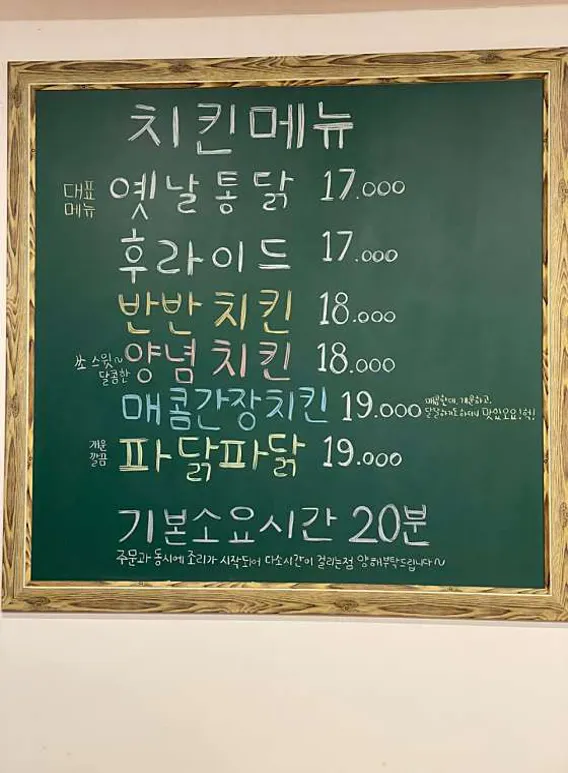 치킨메뉴
대표
메뉴
옛날통닭 17.000
후라이드 17.000
반반치킨 18.000
쏘 스윗~
달콤한
양념치킨 18.000
매콤간장치킨 19.000
매콤한데, 개운하고,
맛있오요!헉!
개운
깔끔
파닭파닭 19.000
기본소요시간 20분
주문과 동시에 조리가 시작되어 다소시간이 걸리는점 양해부탁드립니다~